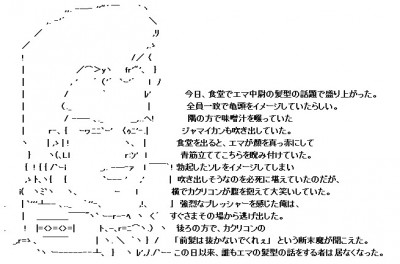 今日、食堂でエマ中尉の髪型の話題で盛り上がった。
全員一致で亀頭をイメージしていたらしい。
隣の方で味噌汁を啜っていた
ジャマイカンも吹き出していた。
食堂を出ると、エマが顔を真っ赤にして
青筋立ててこちらを睨み付けていた。
勃起したソレをイメージしてしまい、
吹き出しそうなのを必死に堪えていたのだが、
横でカクリコンが腹を抱えて大笑いしていた。
強烈なプレッシャーを感じた俺は、
すぐさまその場から逃げ出した。
後ろの方で、カクリコンの
「前髪は抜かないでくれぇ」という断末魔が聞こえた。
この日以来、誰もエマの髪型の話をする者は居なくなった。